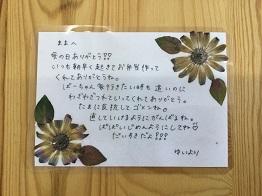 ままへ
母の日ありがとう!!
いつも朝早く起きてお弁当作って
くれてありがとうね。
ばーちゃん家行きたい時も遠いのに
わざわざつれていってくれてありがとう。
たまに反抗してゴメンね。
直していけるようにがんばるね。
ばぁばいじめんようにしてね♡
だいすきだよ!!!
ゆいより